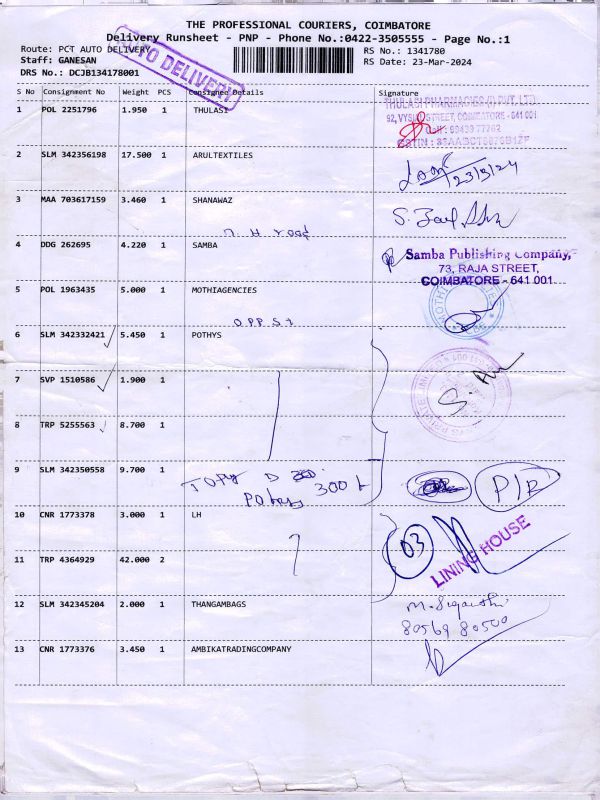 THE PROFESSIONAL COURIERS, COIMBATORE
Delivery Runsheet - PNP - Phone No.:0422-3505555 - Page No.:1
Route: PCT AUTO DELIVERY
RS No.: 1341780
Staff: GANESAN
RS Date: 23-Mar-2024
DRS No.: DCJB134178001
AUTO DELIVERY
S No Consignment No Weight PCS Consignee Details Signature
1 POL 2251796 1.950 1 THULASI
THULASI PHARMACIES (I) PVT. LTD.
92, VYSIAL STREET, COIMBATORE - 641 001
2 SLM 342356198 17.500 1 ARULTEXTILES
23/3/24
3 MAA 703617159 3.460 1 SHANAWAZ
N H road
4 DDG 262695 4.220 1 SAMBA
Samba Publishing Company,
73, RAJA STREET,
COIMBATORE - 641 001
5 POL 1963435 5.000 1 MOTHIAGENCIES
O.P.P. St
6 SLM 342332421 5.450 1 POTHYS
7 SVP 1510586 1.900 1
8 TRP 5255563 8.700 1
9 SLM 342350558 9.700 1
300
P/R
10 CNR 1773378 3.000 1 LH
03
LINING HOUSE
11 TRP 4364929 42.000 2
12 SLM 342345204 2.000 1 THANGAMBAGS
80569 80500
13 CNR 1773376 3.450 1 AMBIKATRADINGCOMPANY